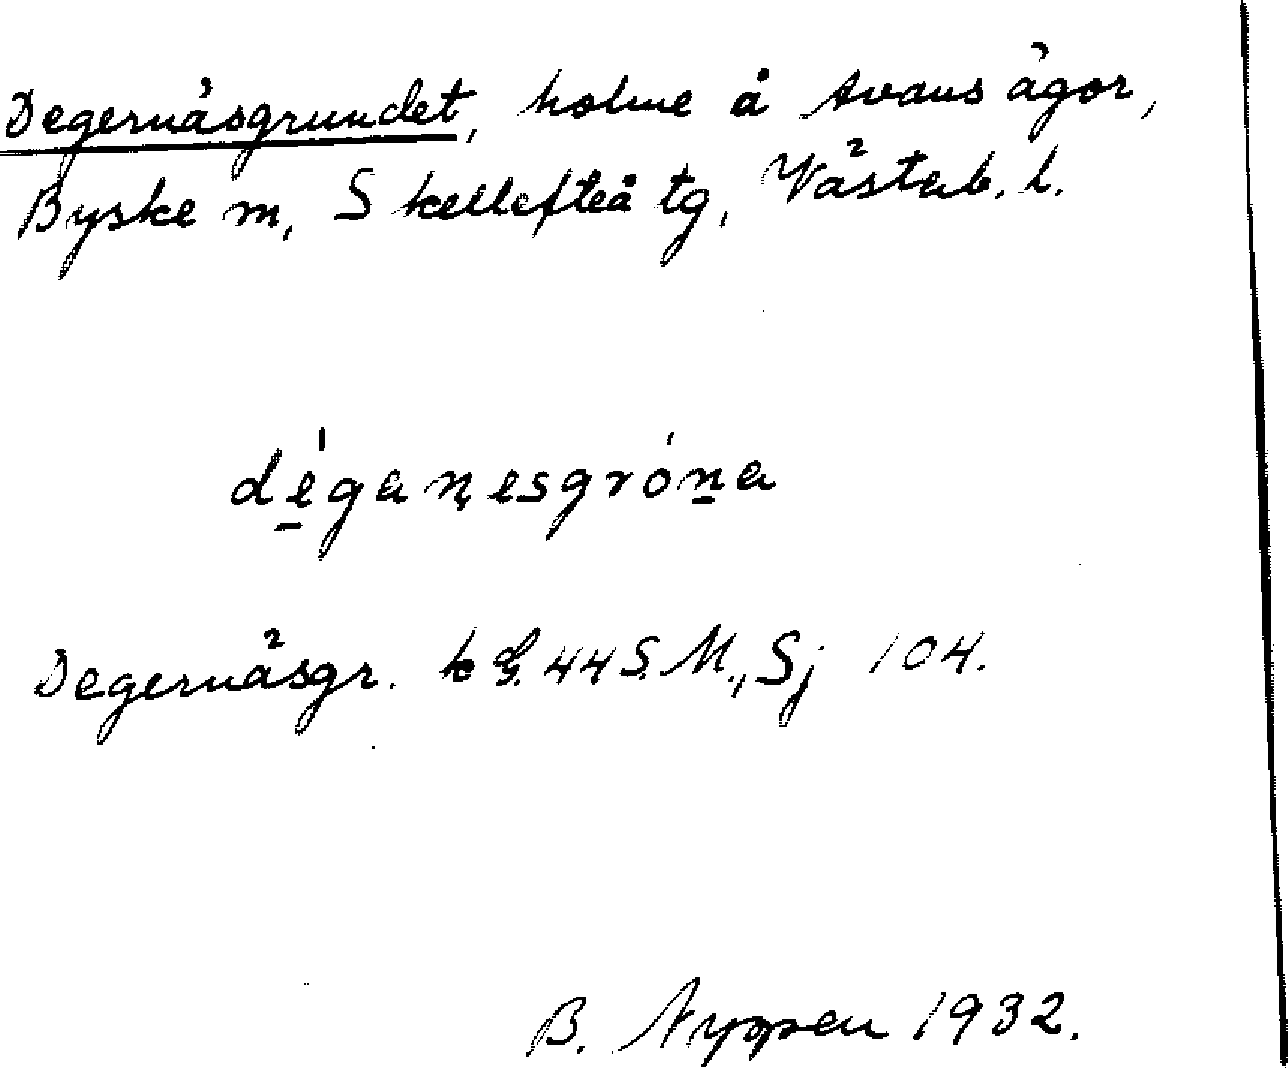 Degernäsgrundet, holme å Avans ägor,
Byske m, Skellefteå tg, Västerb. l.
déganesgróna
Degernäsgr. k G. 44 S. M., Sj 104.
B. 1932.